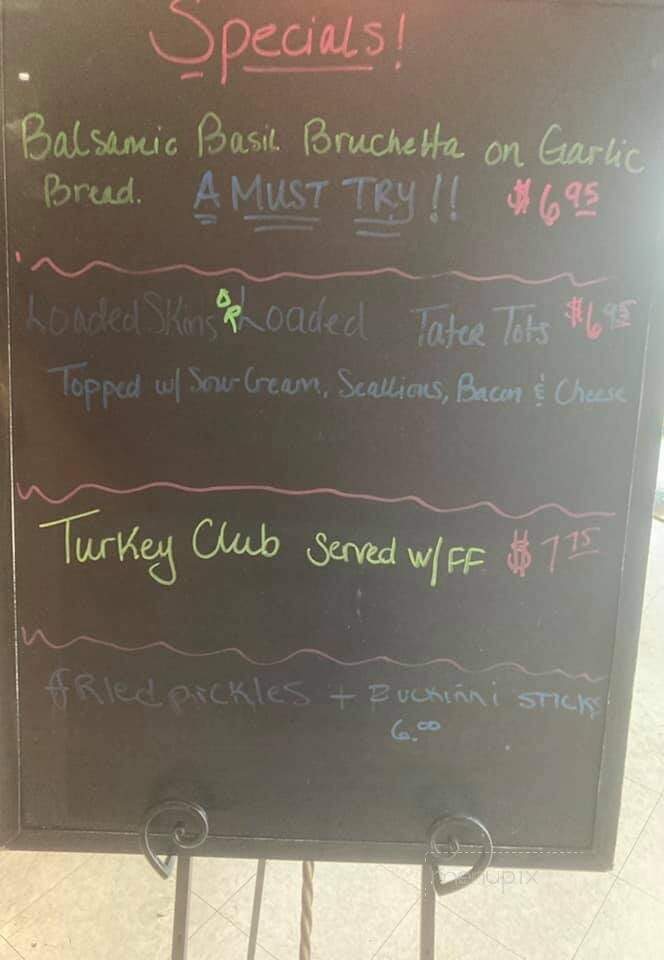 Specials!
Balsamic Basil Bruchetta on Garlic
Bread. A MUST TRY!! $6.95
Loaded Skins OR Loaded Tater Tots $6.95
Topped w/ Sour Cream, Scallions, Bacon & Cheese
Turkey Club Served w/FF $7.75
fRied pickles + Buckinni STICKS
6.00
menupix